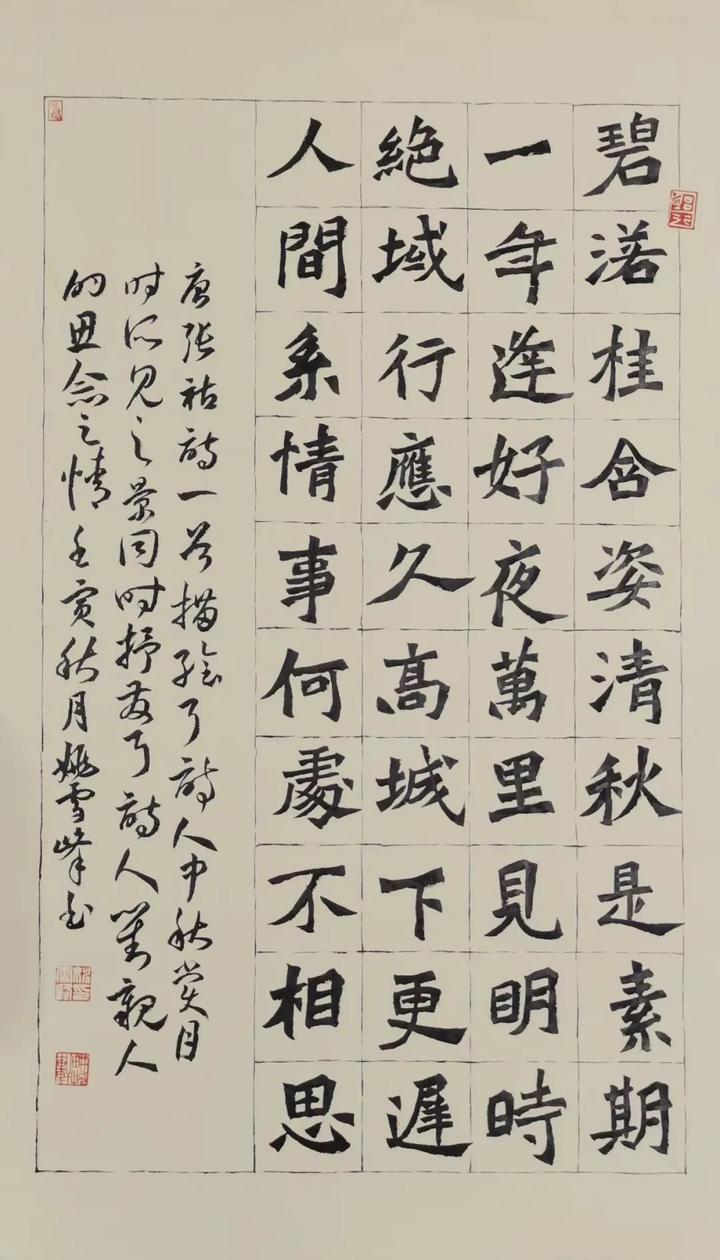 碧渃桂含姿清秋是素期
一年逢好夜萬里見明時
絶域行應久高城下更遲
人間系情事何處不相思
唐張祜詩一首描繪了詩人中秋賞月
時所見之景同時抒發了詩人對親人
的思念之情壬寅秋月姚雪峰書